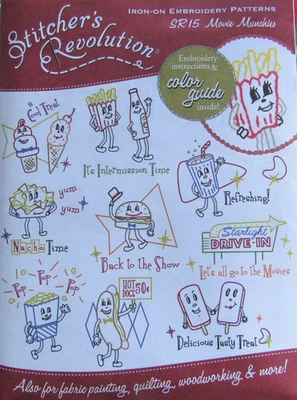 Stitcher's
Revolution®
IRON-ON EMBROIDERY PATTERNS
SR15 Movie Munchies
Embroidery
instructions &
color
guide
inside!
a
Cool Treat
It's Intermission Time
Refreshing!
yum
yum
Nacho Time
Back to the Show
Starlight
DRIVE-IN
Let's all go to the Movies
Pop Pop Pop
HOT
DOGS
50¢
Delicious Tasty Treat
Also for fabric painting, quilting, woodworking & more!